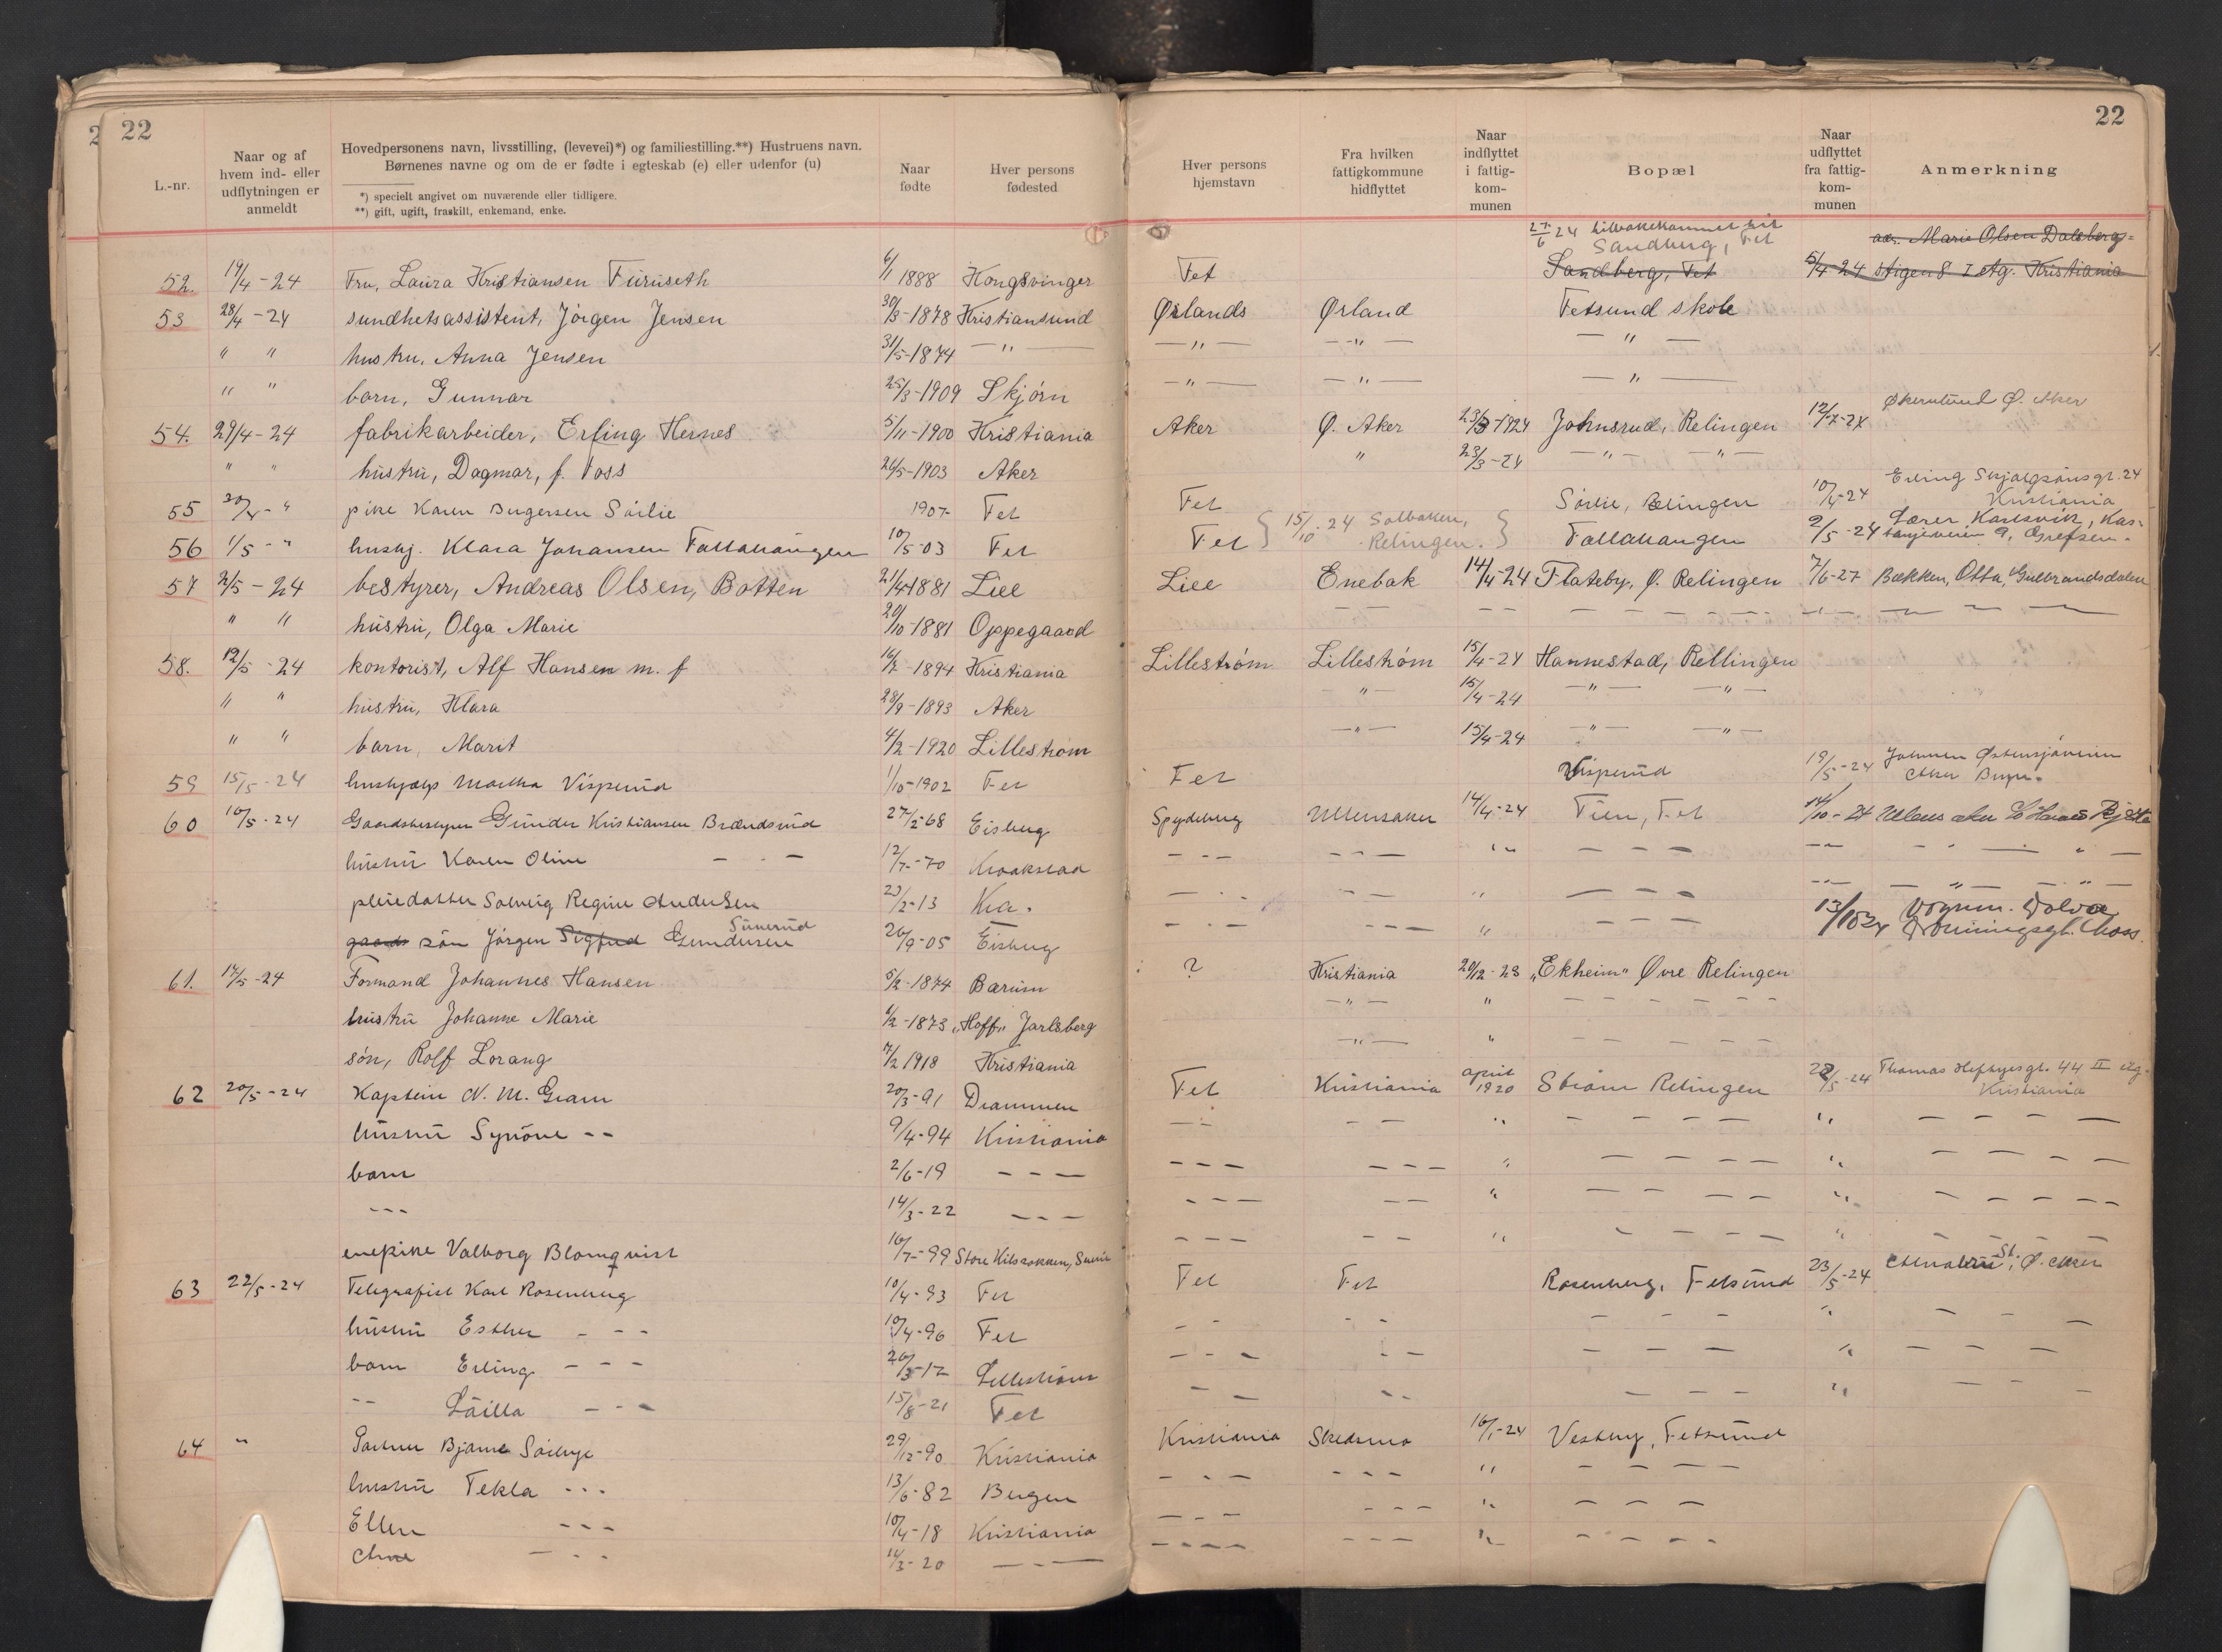 22
22
L.-nr.
Naar og af hvem ind- eller udflytningen er anmeldt
Hovedpersonens navn, livsstilling, (levevei)*) og familiestilling.**) Hustruens navn.
Børnenes navne og om de er fødte i egteskab (e) eller udenfor (u)
*) specielt angivet om nuværende eller tidligere.
**) gift, ugift, fraskilt, enkemand, enke.
Naar fødte
Hver persons fødested
Hver persons hjemstavn
Fra hvilken fattigkommune hidflyttet
Naar indflyttet i fattig-kom-munen
Bopæl
Naar udflyttet fra fattig-kom-munen
Anmerkning
27/6 24 tilbakekommet hit
Sandberg, Fet
adr. Marie Olsen Dalsberg-
52. 19/4-24 Fru, Laura Kristiansen Furuseth 6/1 1888 Kongsvinger Fet Sandberg, Fet 5/4-24 stigen 8. I etg. Kristiania
53 28/4-24 sundhetsassistent, Jörgen Jensen 30/3-1878 Kristiansund Ørlands Ørland Fetsund skole
" " hustru, Anna Jensen 31/5-1874 —"— —"— —"— —"—
" " barn, Gunnar 25/3-1909 Skjörn —"— —"— —"—
Ø. Aker
54. 29/4-24 fabrikarbeider, Erling Hernes 5/11-1900 Kristiania Aker Ø. Aker 23/3-1924 Johnsrud, Relingen 12/7-24
" " hustru, Dagmar, f. Voss 26/5-1903 Aker " 23/3-24 —"— —"—
Erling Skjalgsønsgt. 24
55 30/4-" pike Karen Birgersen Sörlie 1907 Fet Fet Sörlie, Relingen 10/4-24 Kristiania
15/10 24 Solbakken, Relingen.
56 1/5-" hushj. Klara Johansen Fallahaugen 10/5-03 Fet Fet Fallahaugen 2/5-24 Lærer Karlsvik, Kastanjeveien 9, Grefsen.
57 2/5-24 bestyrer, Andreas Olsen, Botten 21/4-1881 Lier Lier Enebak 14/4-24 Flateby, Ø. Relingen 7/6-27 Bækken, Otta, Gulbrandsdalen
" " hustru, Olga Marie 20/10-1881 Oppegaard
58. 12/5-24 kontorist, Alf Hansen m. f 16/2-1894 Kristiania Lilleström Lilleström 15/4-24 Hannestad, Rellingen
" " hustru, Klara 28/9-1893 Aker —"— 15/4-24 —"— —"—
" " barn, Marit 4/2-1920 Lilleström —"— 15/4-24 —"— —"—
59 15/5-24 hushjælp Martha Visperud 1/10-1902 Fet Fet Visperud 19/5-24 Østensjöveien
Aker
60 16/5-24 Gaardsbestyrer Gunder Kristiansen Brændsrud 27/2-68 Eisberg Spydeberg Ullensaker 14/4-24 Tien, Fet 14/10-24 Ullensaker
hustru Karen Oline — - — 12/7-70 Kraakstad — - — — - — " — — —
pleiedatter Solveig Regine Andersen 23/2-13 Kra. — - — — — " — — —
gaards sön Jörgen Sigfred Gundersen Sünerüd 26/9-05 Eisberg — - — — — — " 13/10 24 Dronningsgt. Moss.
61. 17/5-24 Formand Johannes Hansen 5/2-1874 Bærum ? Kristiania 20/12-23 „Ekheim" Øvre Relingen
hustru Johanne Marie 6/2-1873 „Hoff" Jarlsberg —"— "
sön, Rolf Lorang 7/2 1918 Kristiania —"— "
62 20/5-24 Kaptein N. M. Gram 20/3-91 Drammen Fet Kristiania april 1920 Ström Relingen 22/5-24 Thomas Heftyesgt. 44 II etg. Kristiania
hustru Synöve -- 9/4-94 Kristiania
barn 2/6-19 — — —
--- 14/3-22 — — —
enepike Valborg Blomqvist 16/7-99
63 22/5-24 Telegrafist Karl Rosenberg 10/4-93 Fet Fet Fet Rosenberg, Fetsund 23/5-24 St. Ø. Aker
hustru Esther - - - 10/4-96 Fet
barn Erling - - - 26/3-12 Lilleström
-- Läilla - - - 15/8-21 Fet
64 " Bjarne 29/12-90 Kristiania Kristiania Skedsmo 16/1-24 Vestby, Fetsund
hustru Tekla - - - 13/6-82 Bergen
Ellen - - - 10/4-18 Kristiania
— - - 14/3-20 — - —